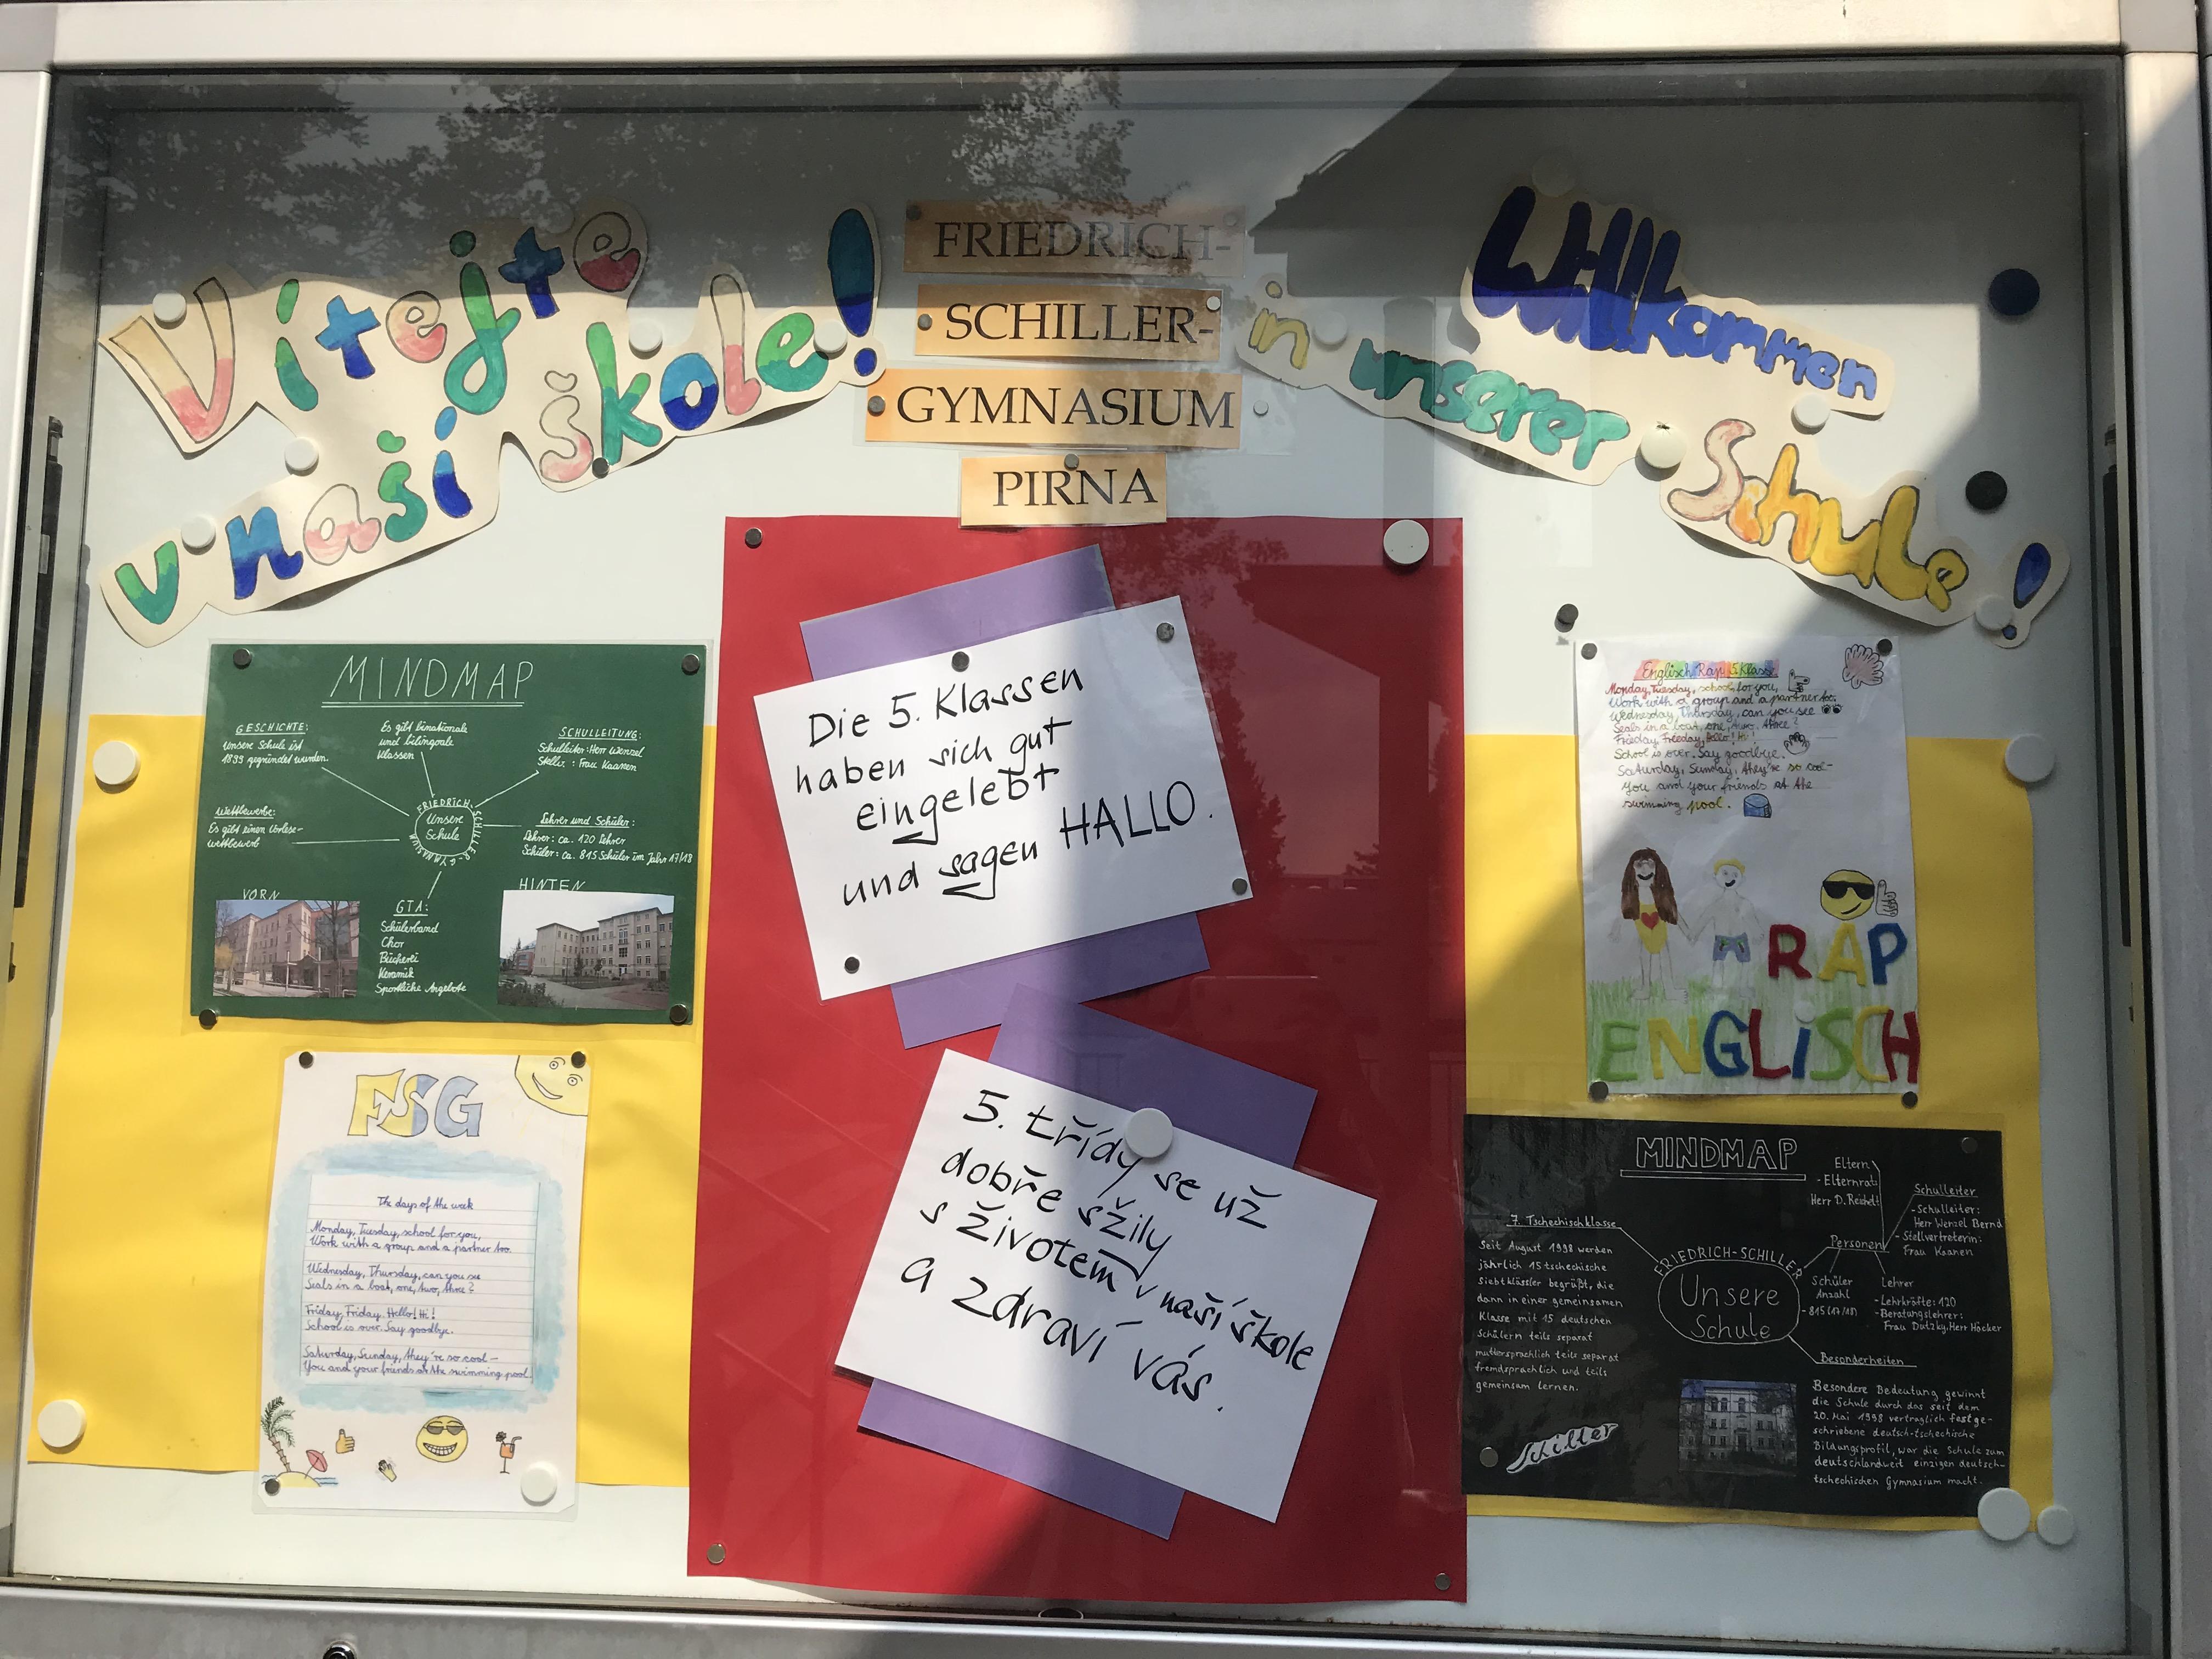 Vítejte
v naší škole!
FRIEDRICH-
SCHILLER-
GYMNASIUM
PIRNA
Willkommen
in unserer
Schule!
MINDMAP
GESCHICHTE:
Unsere Schule ist
1899 gegründet wurden.
Es gibt binationale
und bilinguale
Klassen
SCHULLEITUNG:
Schulleiter: Herr Wenzel
Stellv. : Frau Kaanen
Wettbewerbe:
Es gibt einen Vorlese-
wettbewerb
FRIEDRICH-SCHILLER-GYMNASIUM
Unsere
Schule
Lehrer und Schüler:
Lehrer: ca. 120 Lehrer
Schüler: ca. 815 Schüler im Jahr 17/18
VORN
GTA:
Schülerband
Chor
Bücherei
Keramik
Sportliche Angebote
HINTEN
FSG
The days of the week
Monday, Tuesday, school for you,
Work with a group and a partner too.
Wednesday, Thursday, can you see
Seals in a boat, one, two, three?
Friday, Friday. Hello! Hi!
School is over. Say goodbye.
Saturday, Sunday, they're so cool –
You and your friends at the swimming pool.
Die 5. Klassen
haben sich gut
eingelebt
und sagen HALLO.
5. třídy se už
dobře sžily
s životem v naší škole
a zdraví vás.
Englisch Rap 5. Klasse
Monday, Tuesday, school for you,
Work with a group and a partner too.
Wednesday, Thursday, can you see
Seals in a boat, one, two, three?
Frieday, Frieday, Hello! Hi!
School is over. Say goodbye.
Saturday, Sunday, they're so cool-
You and your friends at the
swimming pool.
RAP
ENGLiSCH
MINDMAP
Eltern
- Elternrat:
Herr D. Reichelt
Schulleiter
- Schulleiter:
Herr Wenzel Bernd
- Stellvertreterin:
Frau Kaanen
Personen
7. Tschechischklasse
Seit August 1998 werden
jährlich 15 tschechische
Siebtklässler begrüßt, die
dann in einer gemeinsamen
Klasse mit 15 deutschen
Schülern teils separat
muttersprachlich teils separat
fremdsprachlich und teils
gemeinsam lernen.
FRIEDRICH-SCHILLER
Unsere
Schule
Schüler
Anzahl
- 815 (17/18)
Lehrer
- Lehrkräfte: 120
- Beratungslehrer:
Frau Dutzky, Herr Höcker
Besonderheiten
Besondere Bedeutung gewinnt
die Schule durch das seit dem
20. Mai 1998 vertraglich festge-
schriebene deutsch-tschechische
Bildungsprofil, war die Schule zum
deutschlandweit einzigen deutsch-
tschechischen Gymnasium macht.
Schiller